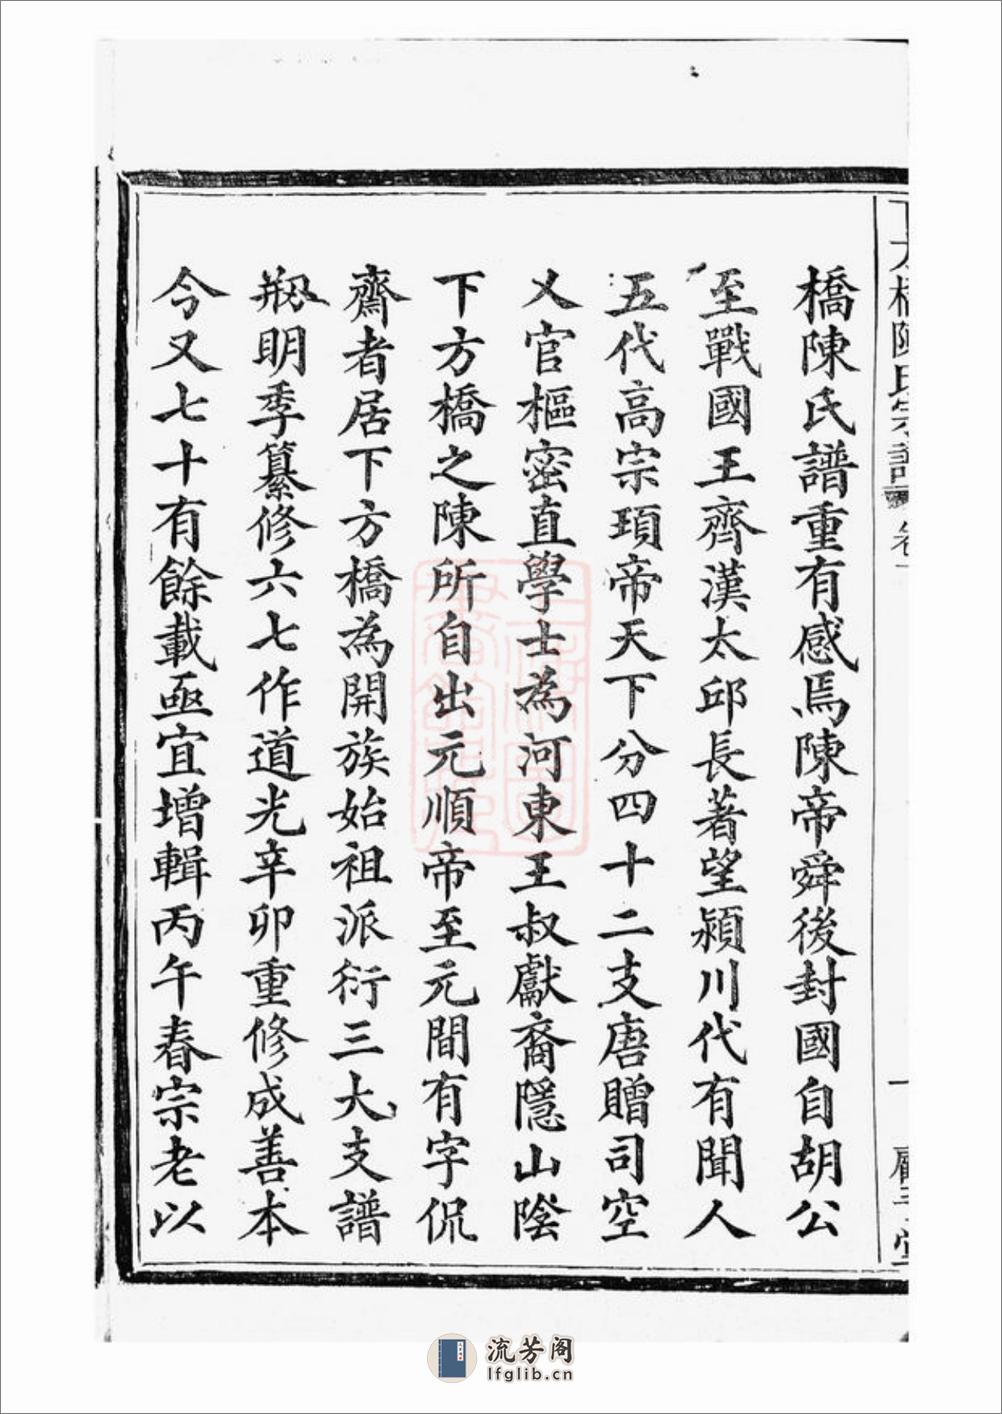 橋陳氏譜重有感焉陳帝舜後封國自胡公
至戰國王齊漢太邱長著望潁川代有聞人
五代高宗頊帝天下分四十二支唐贈司空
乂官樞密直學士為河東王叔獻裔隱山陰
下方橋之陳所自出元順帝至元間有字侃
齋者居下方橋為開族始祖派衍三大支譜
剏明季纂修六七作道光辛卯重修成善本
今又七十有餘載亟宜增輯丙午春宗老以
下方橋陳氏宗譜 卷一
一
流芳阁
lfglib.cn